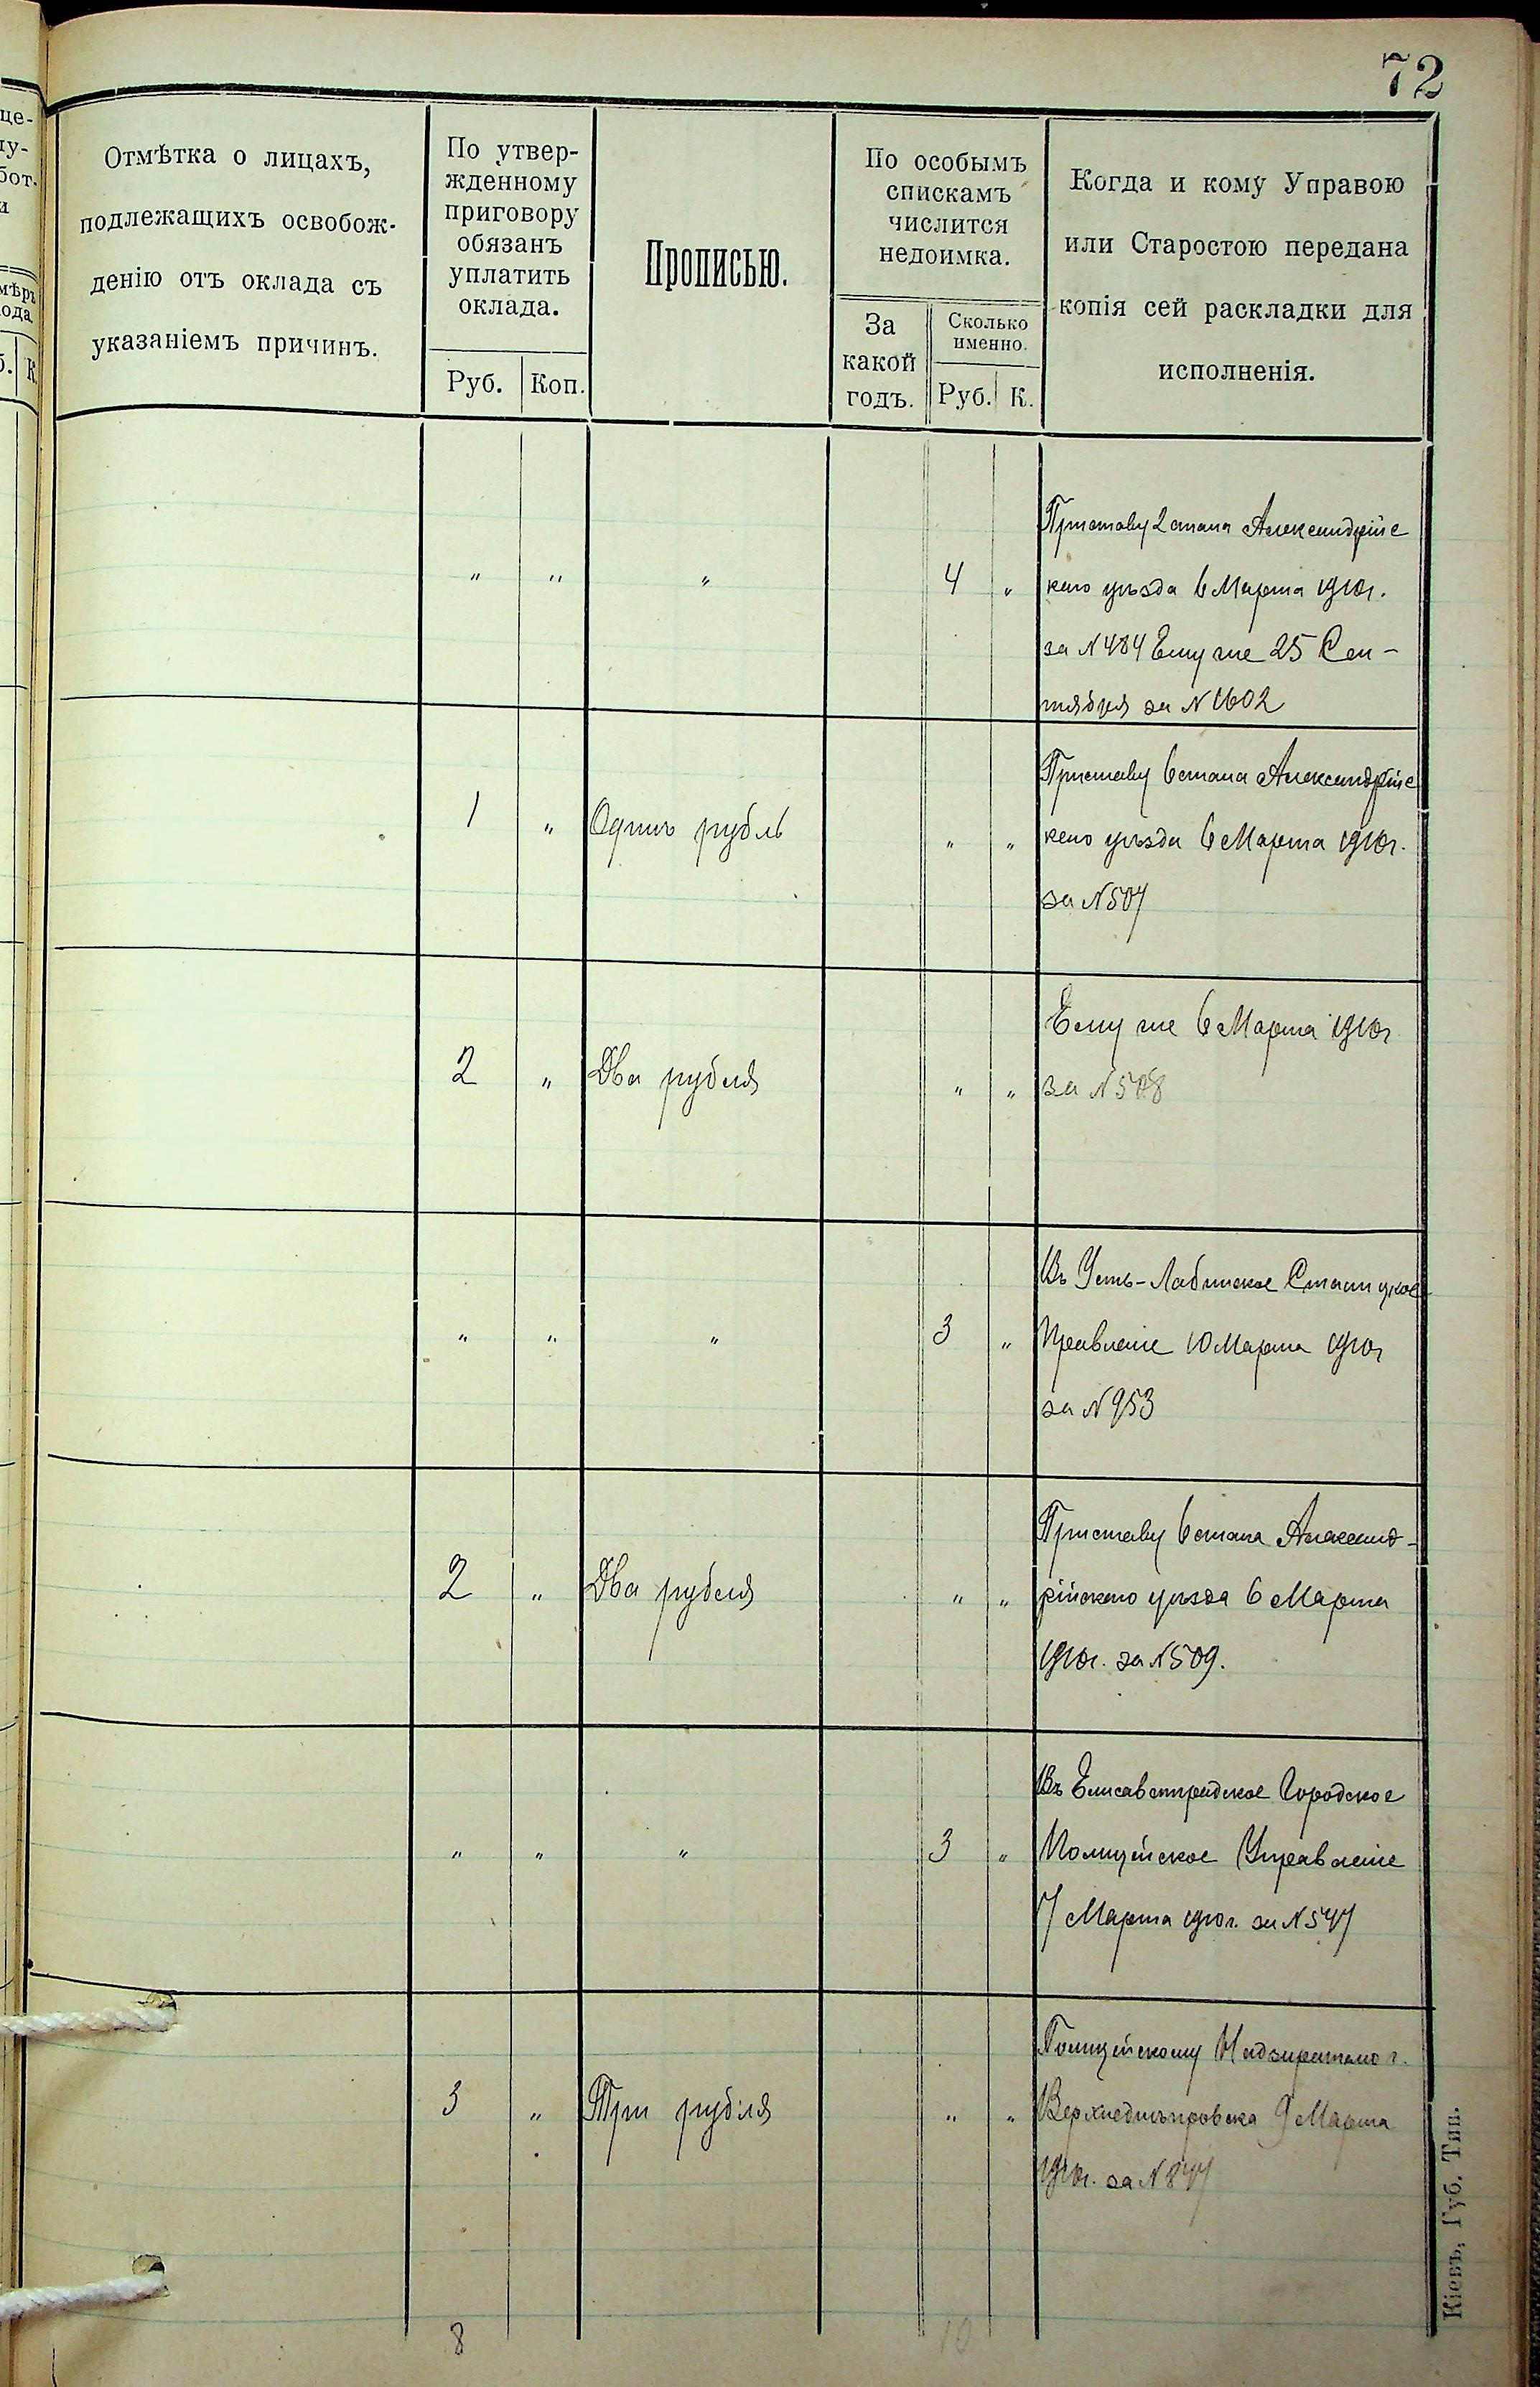 72
це-
бот.
мѣръ
ода
Отмѣтка о лицахъ,
подлежащихъ освобож-
денію отъ оклада съ
указаніемъ причинъ.
По утвер-
жденному
приговору
обязанъ
уплатить
оклада.
Руб. Коп.
Прописью.
По особымъ
спискамъ
числится
недоимка.
За
какой
годъ.
Сколько
именно.
Руб. К.
Когда и кому Управою
или Старостою передана
копія сей раскладки для
исполненія.
Приставу 2 стана Александрійс
" " " 4 " каго уѣзда 6 Марта 1910г.
за N 484 Ему же 25 Сен-
тября за N 1602
Приставу 6 стана Александрійс
1 " Одинъ рубль " " каго уѣзда 6 Марта 1910г.
за N 507
Ему же 6 Марта 1910г
2 " Два рубля " " за N 508
Въ Усть-Лабинское Станичное
" " " 3 " Правленіе 10 Марта 1910г
за N 953
Приставу 6 стана Александ-
2 " Два рубля " " рійскаго уѣзда 6 Марта
1910г. за N 509.
Въ Елисаветградское Городское
" " " 3 " Полицейское Управленіе
7 Марта 1910г. за N 547
Полицейскому Надзирателю г.
3 " Три рубля " " Верхнеднѣпровска 9 Марта
1910г. за N 877
8 10
Кіевъ, Губ. Тип.